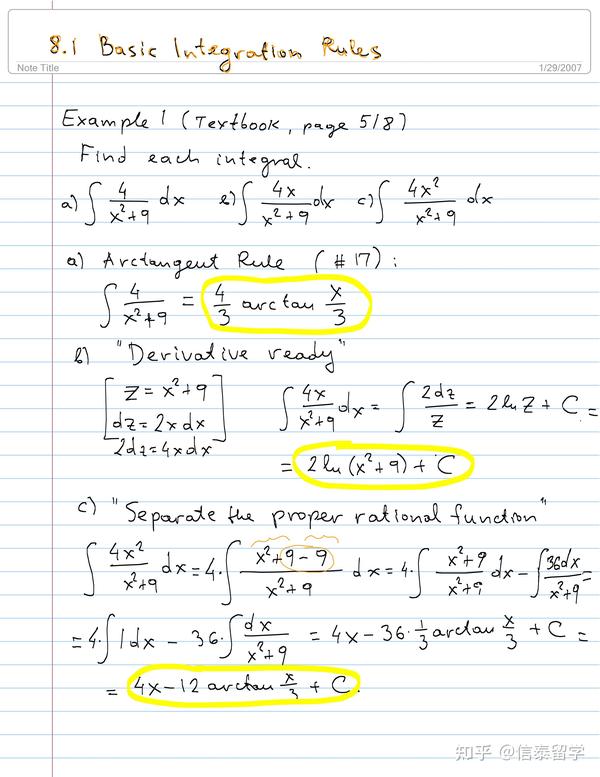 8.1 Basic Integration Rules
Note Title 1/29/2007
Example 1 (Textbook, page 518)
Find each integral.
a) ∫ 4/(x²+9) dx b) ∫ 4x/(x²+9) dx c) ∫ 4x²/(x²+9) dx
a) Arctangent Rule (#17):
∫ 4/(x²+9) = 4/3 arctan x/3
b) "Derivative ready"
[z = x²+9
dz = 2xdx]
2dz = 4xdx
∫ 4x/(x²+9) dx = ∫ 2dz/z = 2 ln z + C =
= 2 ln (x²+9) + C
c) "Separate the proper rational function"
∫ 4x²/(x²+9) dx = 4·∫ (x²+9-9)/(x²+9) dx = 4·∫ (x²+9)/(x²+9) dx - ∫ 36dx/(x²+9) =
= 4·∫ 1dx - 36·∫ dx/(x²+9) = 4x - 36·1/3 arctan x/3 + C =
= 4x-12 arctan x/3 + C.
知乎 @信泰留学